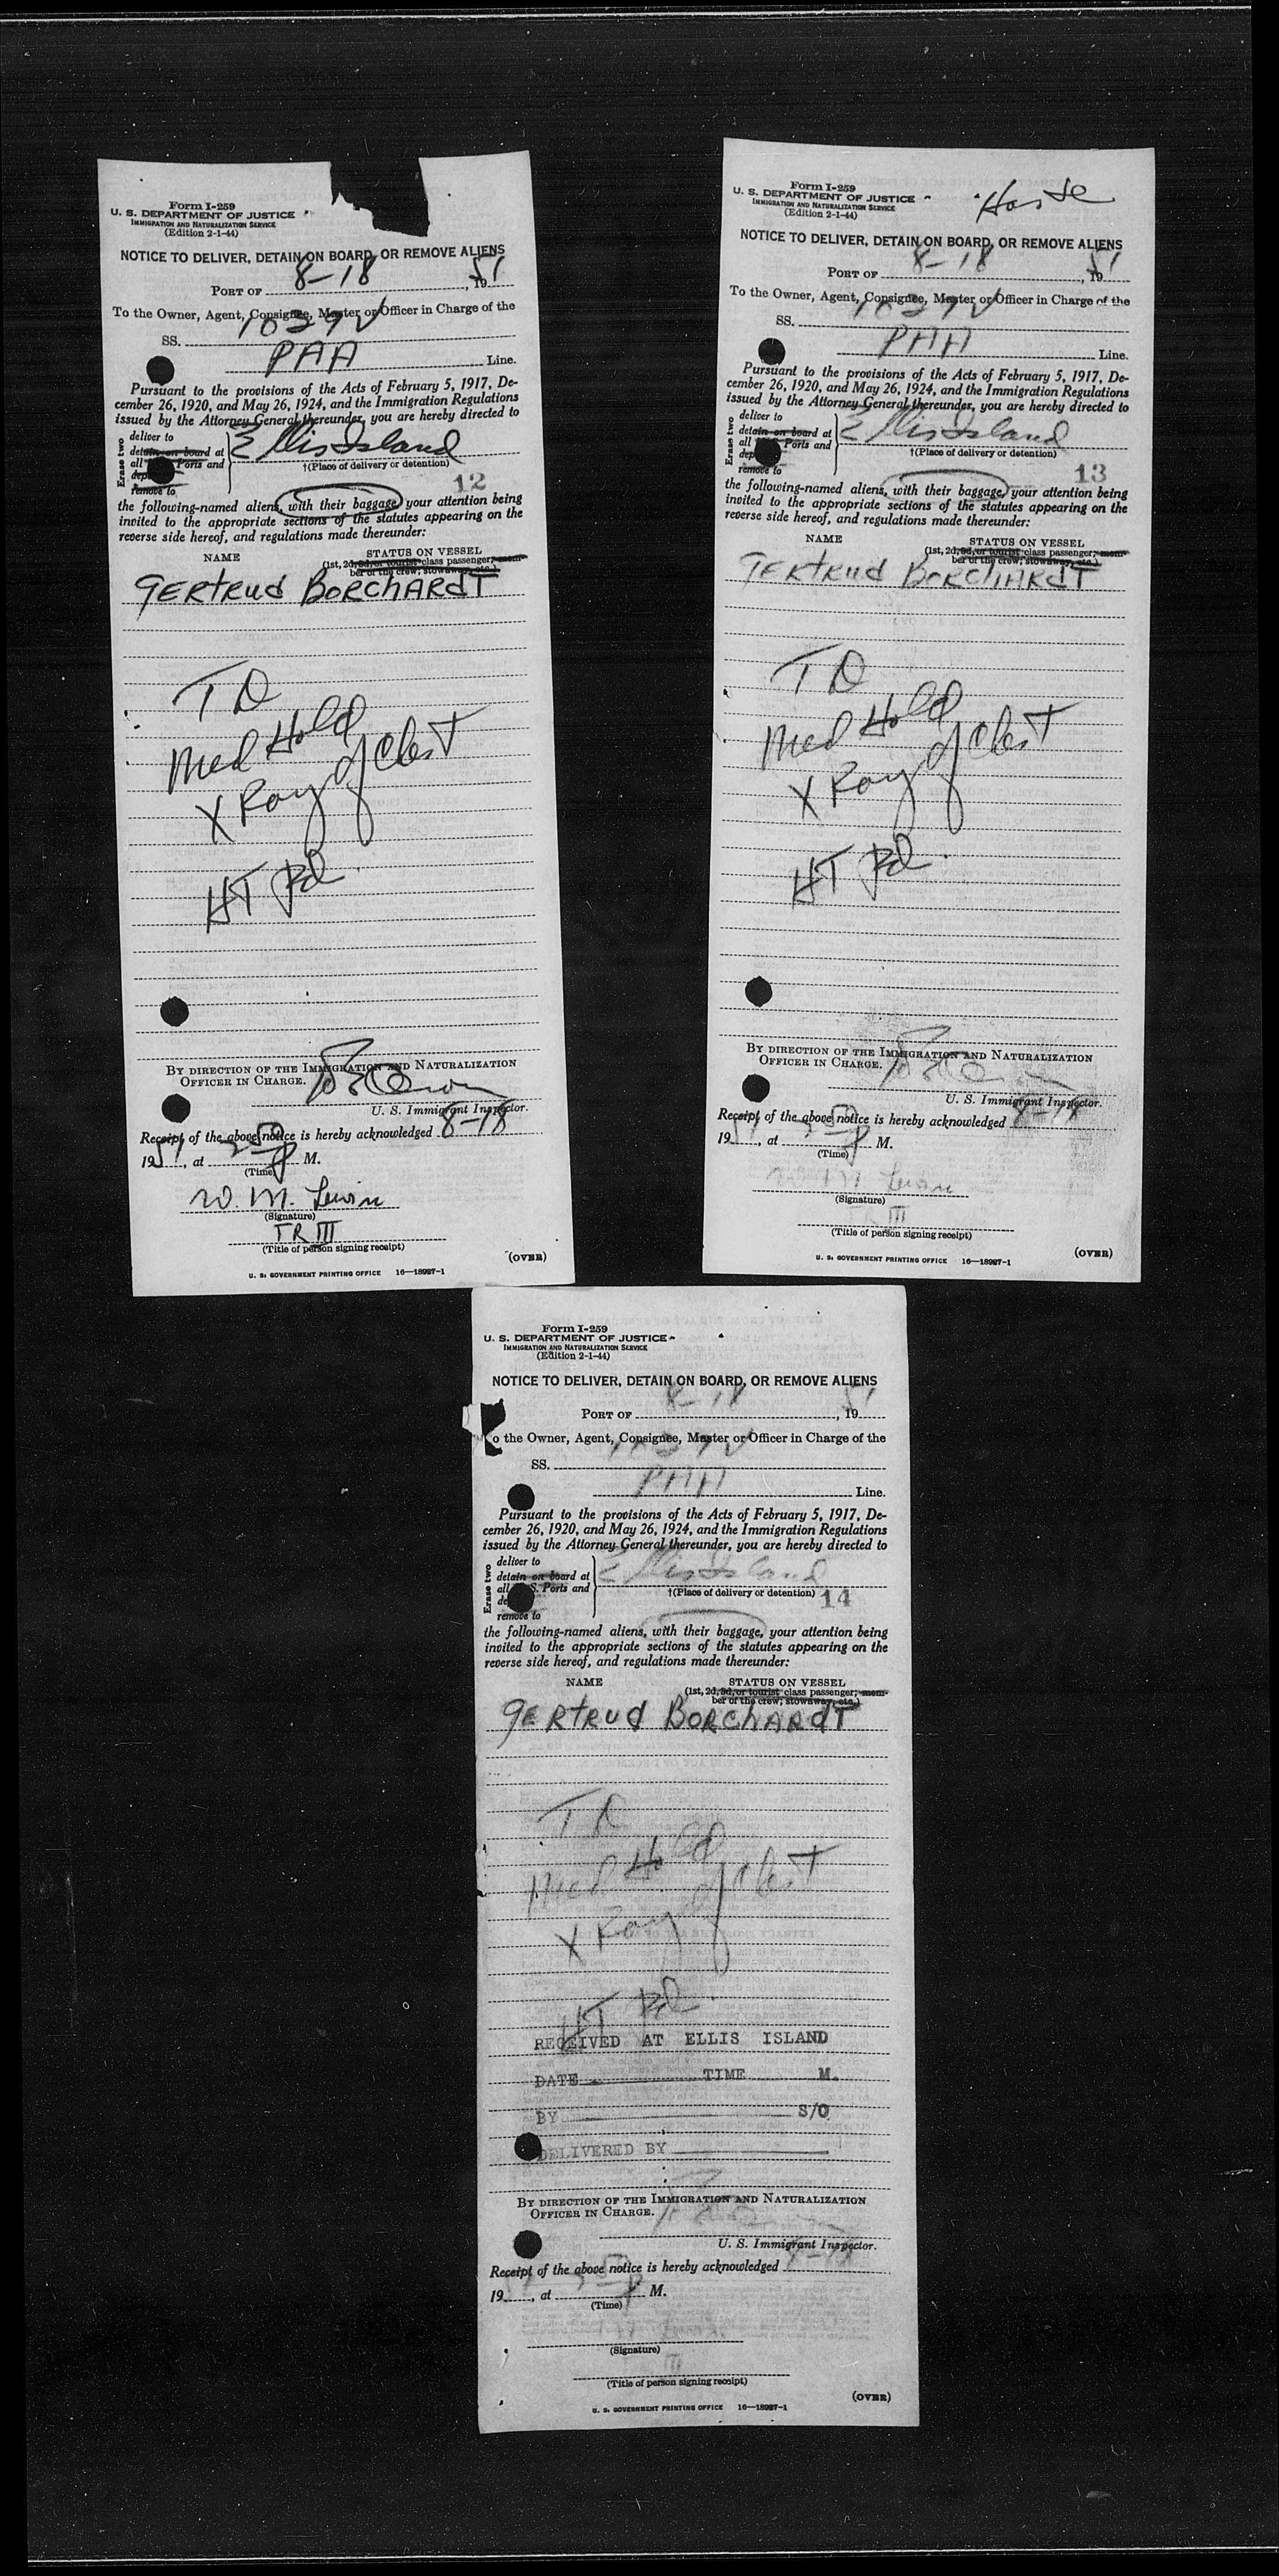 Form I-259
U. S. DEPARTMENT OF JUSTICE
IMMIGRATION AND NATURALIZATION SERVICE
(Edition 2-1-44)
NOTICE TO DELIVER, DETAIN ON BOARD, OR REMOVE ALIENS
PORT OF 8-18, 1951
To the Owner, Agent, Consignee, Master or Officer in Charge of the
SS. 1029V
PAA Line.
Pursuant to the provisions of the Acts of February 5, 1917, De-
cember 26, 1920, and May 26, 1924, and the Immigration Regulations
issued by the Attorney General thereunder, you are hereby directed to
Erase two
deliver to
detain on board at
all Ports and
remove to
Ellis Island
†(Place of delivery or detention)
12
the following-named aliens, with their baggage, your attention being
invited to the appropriate sections of the statutes appearing on the
reverse side hereof, and regulations made thereunder:
NAME STATUS ON VESSEL
(1st, 2d, 3d, or tourist class passenger; mem-
ber of the crew; stowaway, etc.)
GERTRUD BORCHARDT
TD
Med Hold
X Ray of Chest
HT Rd
BY DIRECTION OF THE IMMIGRATION AND NATURALIZATION
OFFICER IN CHARGE.
U. S. Immigrant Inspector.
Receipt of the above notice is hereby acknowledged 8-18
1951, at 250 P M.
(Time)
W. M. Lewin
(Signature)
TR III
(Title of person signing receipt)
(OVER)
U. S. GOVERNMENT PRINTING OFFICE 16—18927-1
Form I-259
U. S. DEPARTMENT OF JUSTICE
IMMIGRATION AND NATURALIZATION SERVICE
(Edition 2-1-44)
NOTICE TO DELIVER, DETAIN ON BOARD, OR REMOVE ALIENS
PORT OF 8-18, 1951
To the Owner, Agent, Consignee, Master or Officer in Charge of the
SS. 1029V
PAA Line.
Pursuant to the provisions of the Acts of February 5, 1917, De-
cember 26, 1920, and May 26, 1924, and the Immigration Regulations
issued by the Attorney General thereunder, you are hereby directed to
Erase two
deliver to
detain on board at
all Ports and
remove to
Ellis Island
†(Place of delivery or detention)
13
the following-named aliens, with their baggage, your attention being
invited to the appropriate sections of the statutes appearing on the
reverse side hereof, and regulations made thereunder:
NAME STATUS ON VESSEL
(1st, 2d, 3d, or tourist class passenger; mem-
ber of the crew; stowaway, etc.)
GERTRUD BORCHARDT
TD
Med Hold
X Ray of Chest
HT Rd
BY DIRECTION OF THE IMMIGRATION AND NATURALIZATION
OFFICER IN CHARGE.
U. S. Immigrant Inspector.
Receipt of the above notice is hereby acknowledged 8-18
1951, at P M.
(Time)
W. M. Lewin
(Signature)
TR III
(Title of person signing receipt)
(OVER)
U. S. GOVERNMENT PRINTING OFFICE 16—18927-1
Form I-259
U. S. DEPARTMENT OF JUSTICE
IMMIGRATION AND NATURALIZATION SERVICE
(Edition 2-1-44)
NOTICE TO DELIVER, DETAIN ON BOARD, OR REMOVE ALIENS
PORT OF 8-18, 1951
o the Owner, Agent, Consignee, Master or Officer in Charge of the
SS. 1029V
PAA Line.
Pursuant to the provisions of the Acts of February 5, 1917, De-
cember 26, 1920, and May 26, 1924, and the Immigration Regulations
issued by the Attorney General thereunder, you are hereby directed to
Erase two
deliver to
detain on board at
all S. Ports and
remove to
Ellis Island
†(Place of delivery or detention)
14
the following-named aliens, with their baggage, your attention being
invited to the appropriate sections of the statutes appearing on the
reverse side hereof, and regulations made thereunder:
NAME STATUS ON VESSEL
(1st, 2d, 3d, or tourist class passenger; mem-
ber of the crew; stowaway, etc.)
GERTRUD BORCHARDT
TD
Med Hold
X Ray of Chest
HT Rd
RECEIVED AT ELLIS ISLAND
DATE TIME M.
BY S/O
DELIVERED BY
BY DIRECTION OF THE IMMIGRATION AND NATURALIZATION
OFFICER IN CHARGE.
U. S. Immigrant Inspector.
Receipt of the above notice is hereby acknowledged 8-18
19, at P M.
(Time)
(Signature)
III
(Title of person signing receipt)
(OVER)
U. S. GOVERNMENT PRINTING OFFICE 16—18927-1